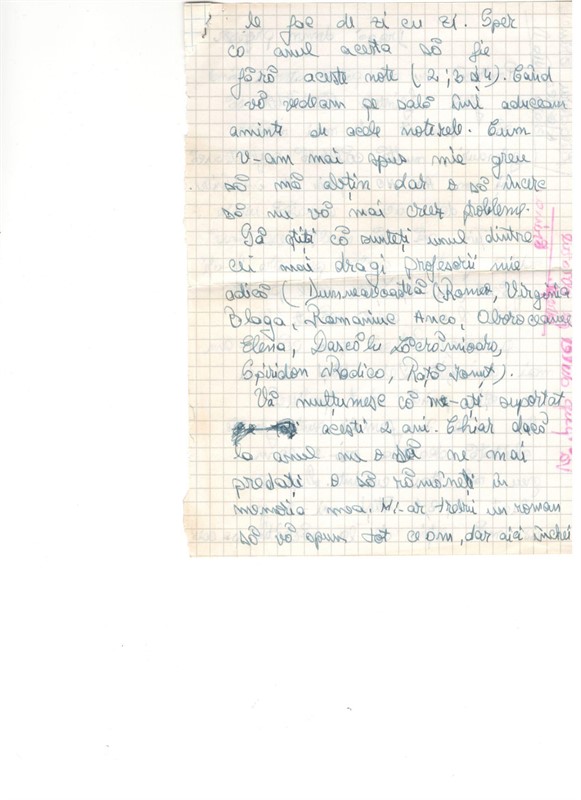 le fac de zi cu zi. Sper
ca anul acesta să fie
fără aceste note (2;3 și 4). Când
vă vedeam pe sală îmi aduceam
aminte de acele notețele. Cum
v-am mai spus mie greu
să mă abțin dar o să încerc
să nu vă mai creez probleme.
Să știți că sunteți unul dintre
cei mai dragi profesorii mie
adică (Dumneavoastră (Romeo, Virginia
Blaga, Romaniuc Anca, Oboroceanu
Elena, Dascălu Lăcrămioara,
Spiridon Rodica, Rață Ionuț).
Vă mulțumesc că m-ați suportat
acești 2 ani. Chiar dacă
la anul nu o să ne mai
predați o să rămâneți în
memoria mea. Mi-ar trebui un roman
să vă spun tot ce am, dar aici închei